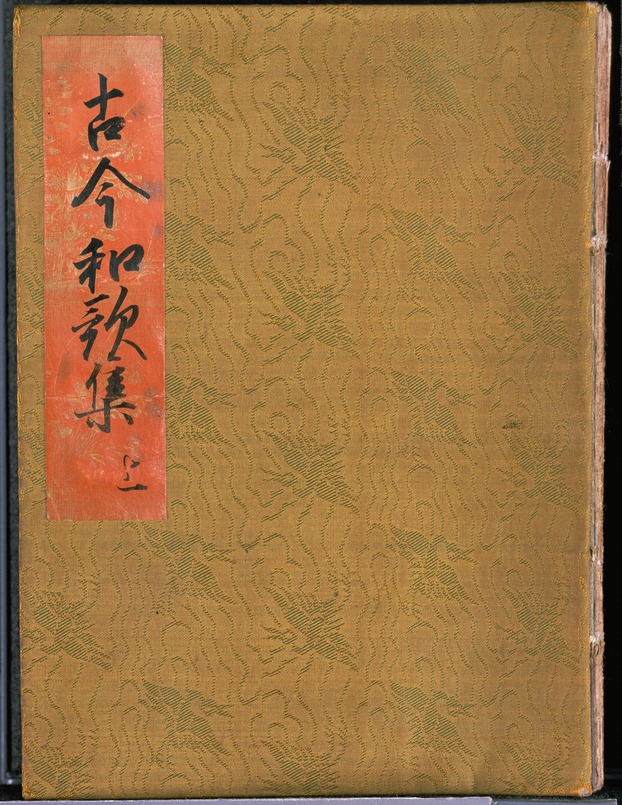 古今和歌集 上